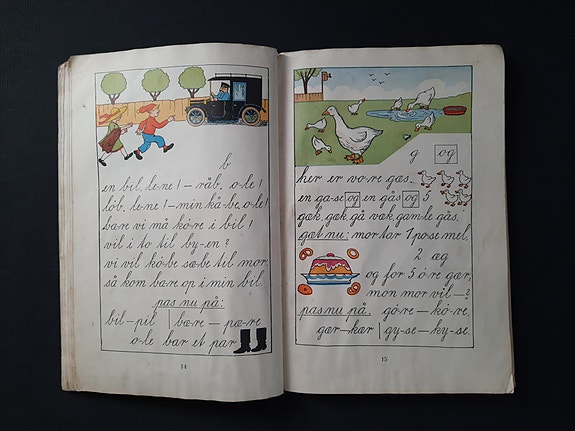 b
en bil, le-ne! – råb, o-le!
löb, le-ne! – min kå-be, o-le!
ba-re vi må kö-re i bil!
vil i to til by-en?
vi vil kö-be sæ-be til mor.
så kom ba-re op i min bil.
pas nu på:
bil – pil | bæ-re – pæ-re
o-le bar et par
14
g og
her er vo-re gæs.
en ga-se og en gås og 5
gæk, gæk, gå væk, gam-le gås.
gæt nu: mor tar 1 po-se mel,
2 æg
og for 5 ö-re gær,
mon mor vil – ?
pas nu på. gö-re – kö-re.
gær – kær | gy-se – ky-se.
15